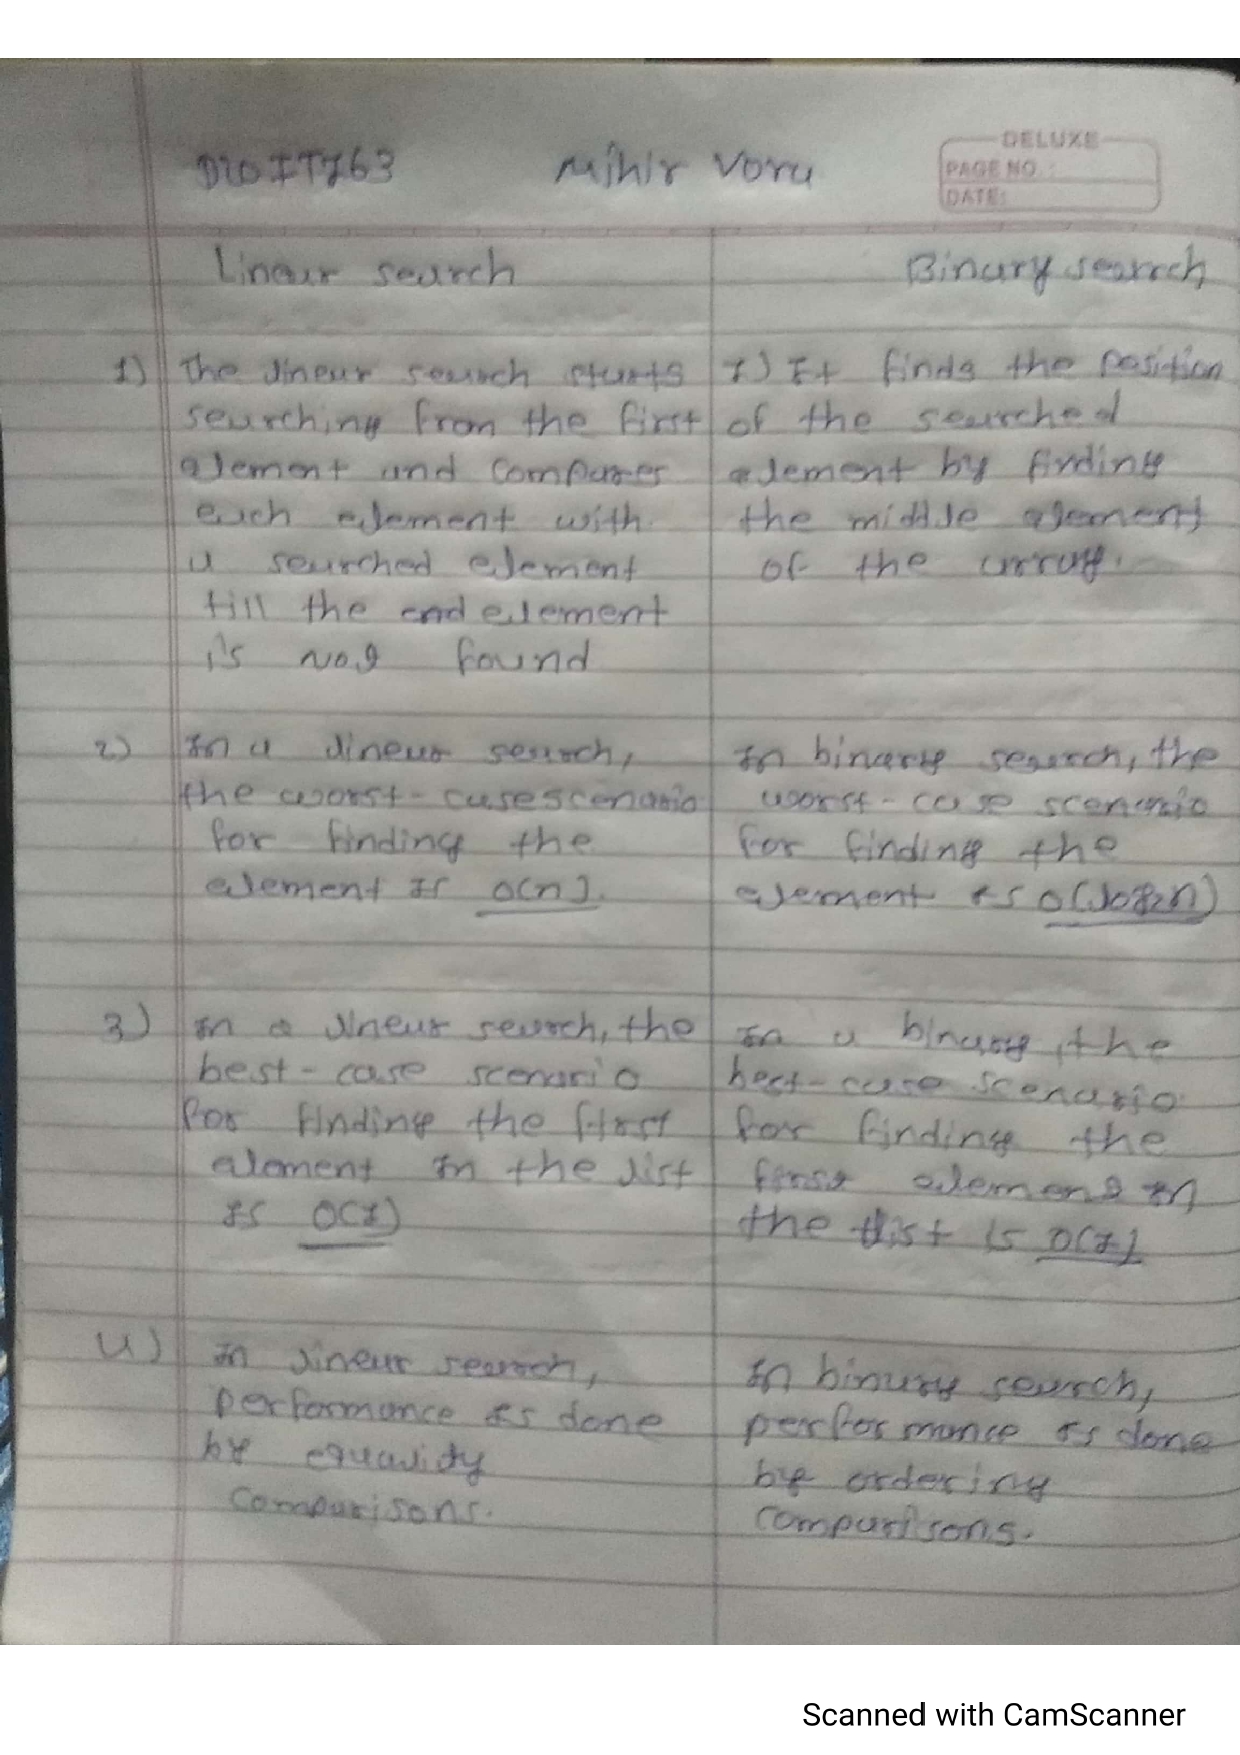 D20IT763 Mihir Vora
DELUXE
PAGE NO. :
DATE:
Linear search
Binary search
1) The linear search starts
searching from the first
element and compares
each element with
a searched element
till the end element
is not found
1) It finds the position
of the searched
element by finding
the middle element
of the array.
2) In a linear search,
the worst-case scenario
for finding the
element is O(n).
In binary search, the
worst-case scenario
for finding the
element is O(log2n)
3) In a linear search, the
best-case scenario
for finding the first
element in the list
is O(1)
In a binary, the
best-case scenario
for finding the
first element in
the list is O(1)
4) In linear search,
performance is done
by equality
comparisons.
In binary search,
performance is done
by ordering
comparisons.
Scanned with CamScanner